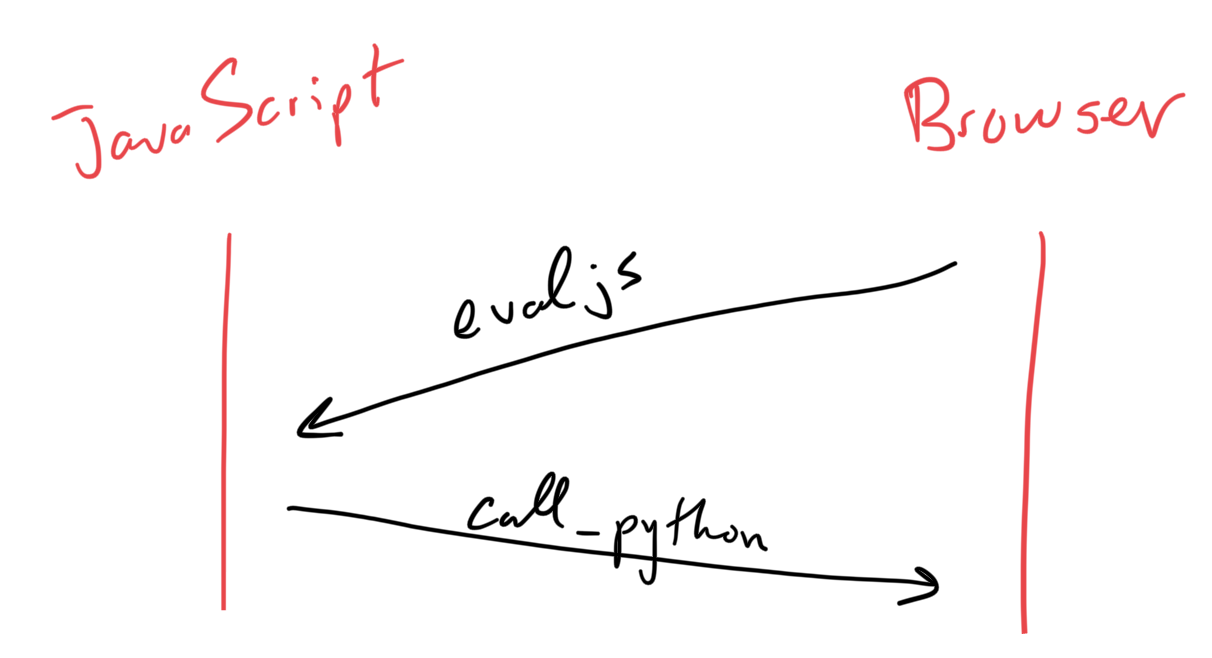 JavaScript
Browser
evaljs
call_python